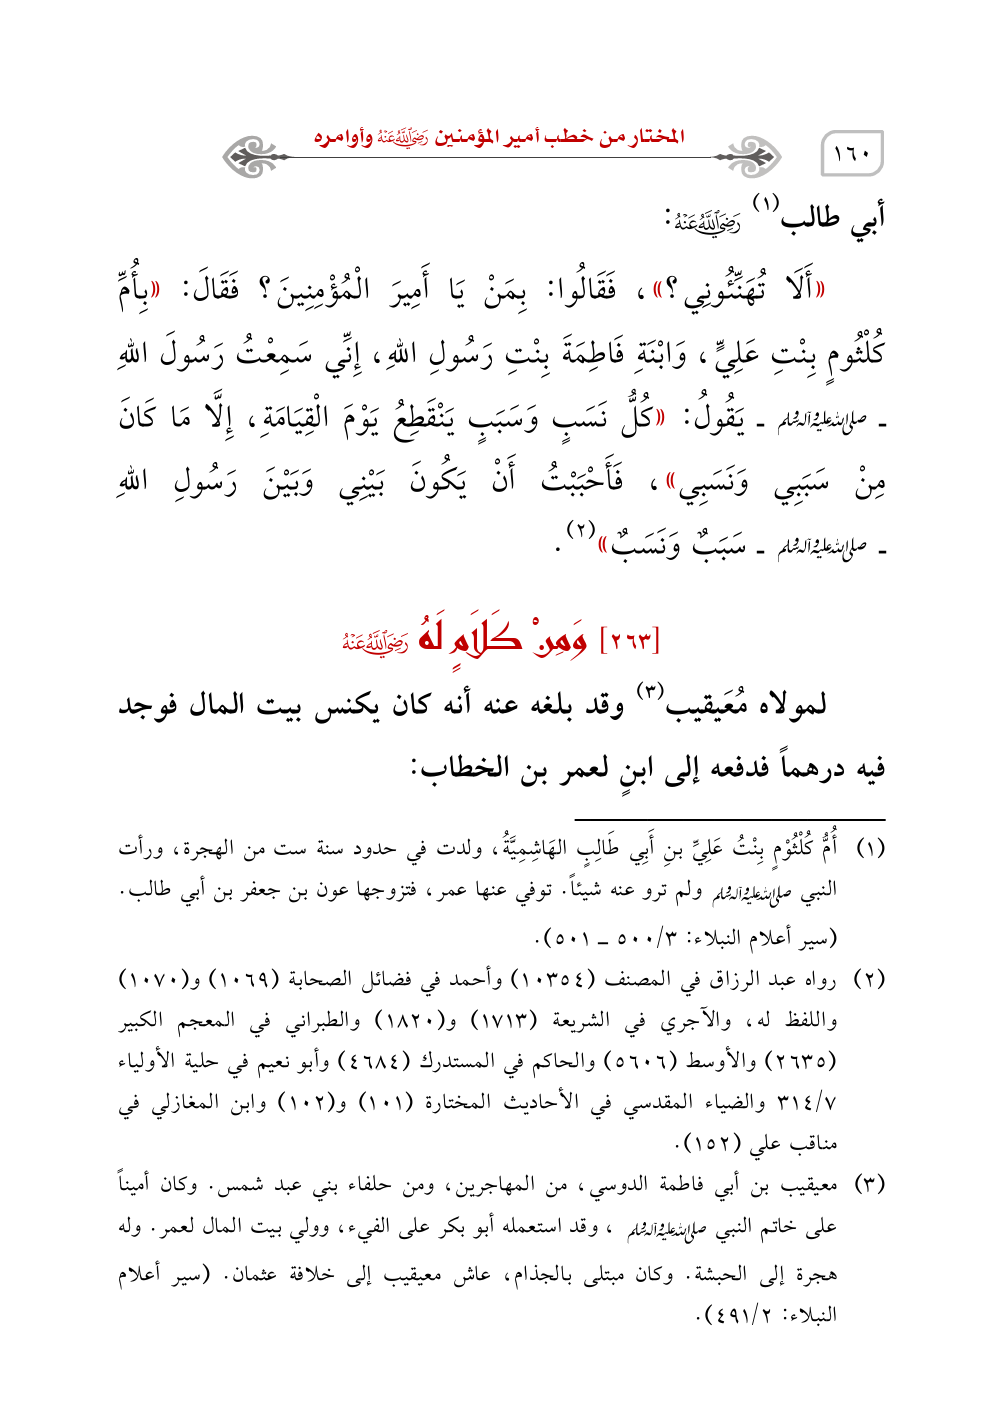 ١٦٠
المختار من خطب أمير المؤمنين رَضِيَ اللَّهُ عَنْهُ وأوامره
أبي طالب(١) رَضِيَ اللَّهُ عَنْهُ:
«أَلَا تُهَنِّئُونِي؟»، فَقَالُوا: بِمَنْ يَا أَمِيرَ الْمُؤْمِنِينَ؟ فَقَالَ: «بِأُمِّ
كُلْثُومٍ بِنْتِ عَلِيٍّ، وَابْنَةِ فَاطِمَةَ بِنْتِ رَسُولِ اللهِ، إِنِّي سَمِعْتُ رَسُولَ اللهِ
ـ صلى الله عليه وآله وسلم ـ يَقُولُ: «كُلُّ نَسَبٍ وَسَبَبٍ يَنْقَطِعُ يَوْمَ الْقِيَامَةِ، إِلَّا مَا كَانَ
مِنْ سَبَبِي وَنَسَبِي»، فَأَحْبَبْتُ أَنْ يَكُونَ بَيْنِي وَبَيْنَ رَسُولِ اللهِ
ـ صلى الله عليه وآله وسلم ـ سَبَبٌ وَنَسَبٌ»(٢).
[٢٦٣] وَمِنْ كَلَامٍ لَهُ رَضِيَ اللَّهُ عَنْهُ
لمولاه مُعَيقيب(٣) وقد بلغه عنه أنه كان يكنس بيت المال فوجد
فيه درهماً فدفعه إلى ابنٍ لعمر بن الخطاب:
(١) أُمُّ كُلْثُوْمٍ بِنْتُ عَلِيِّ بنِ أَبِي طَالِبٍ الهَاشِمِيَّةُ، ولدت في حدود سنة ست من الهجرة، ورأت
النبي صلى الله عليه وآله وسلم ولم ترو عنه شيئاً. توفي عنها عمر، فتزوجها عون بن جعفر بن أبي طالب.
(سير أعلام النبلاء: ٥٠٠/٣ ـ ٥٠١).
(٢) رواه عبد الرزاق في المصنف (١٠٣٥٤) وأحمد في فضائل الصحابة (١٠٦٩) و(١٠٧٠)
واللفظ له، والآجري في الشريعة (١٧١٣) و(١٨٢٠) والطبراني في المعجم الكبير
(٢٦٣٥) والأوسط (٥٦٠٦) والحاكم في المستدرك (٤٦٨٤) وأبو نعيم في حلية الأولياء
٣١٤/٧ والضياء المقدسي في الأحاديث المختارة (١٠١) و(١٠٢) وابن المغازلي في
مناقب علي (١٥٢).
(٣) معيقيب بن أبي فاطمة الدوسي، من المهاجرين، ومن حلفاء بني عبد شمس. وكان أميناً
على خاتم النبي صلى الله عليه وآله وسلم ، وقد استعمله أبو بكر على الفيء، وولي بيت المال لعمر. وله
هجرة إلى الحبشة. وكان مبتلى بالجذام، عاش معيقيب إلى خلافة عثمان. (سير أعلام
النبلاء: ٤٩١/٢).